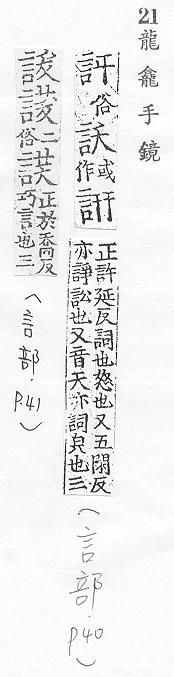 21 龍龕手鏡
俗訞或作訮
正許延反訶也怒也又五閑反
亦諍訟也又音天亦訶皃也三
(言部·P.40)
二俗
正於喬反
巧言也三
(言部·P.41)